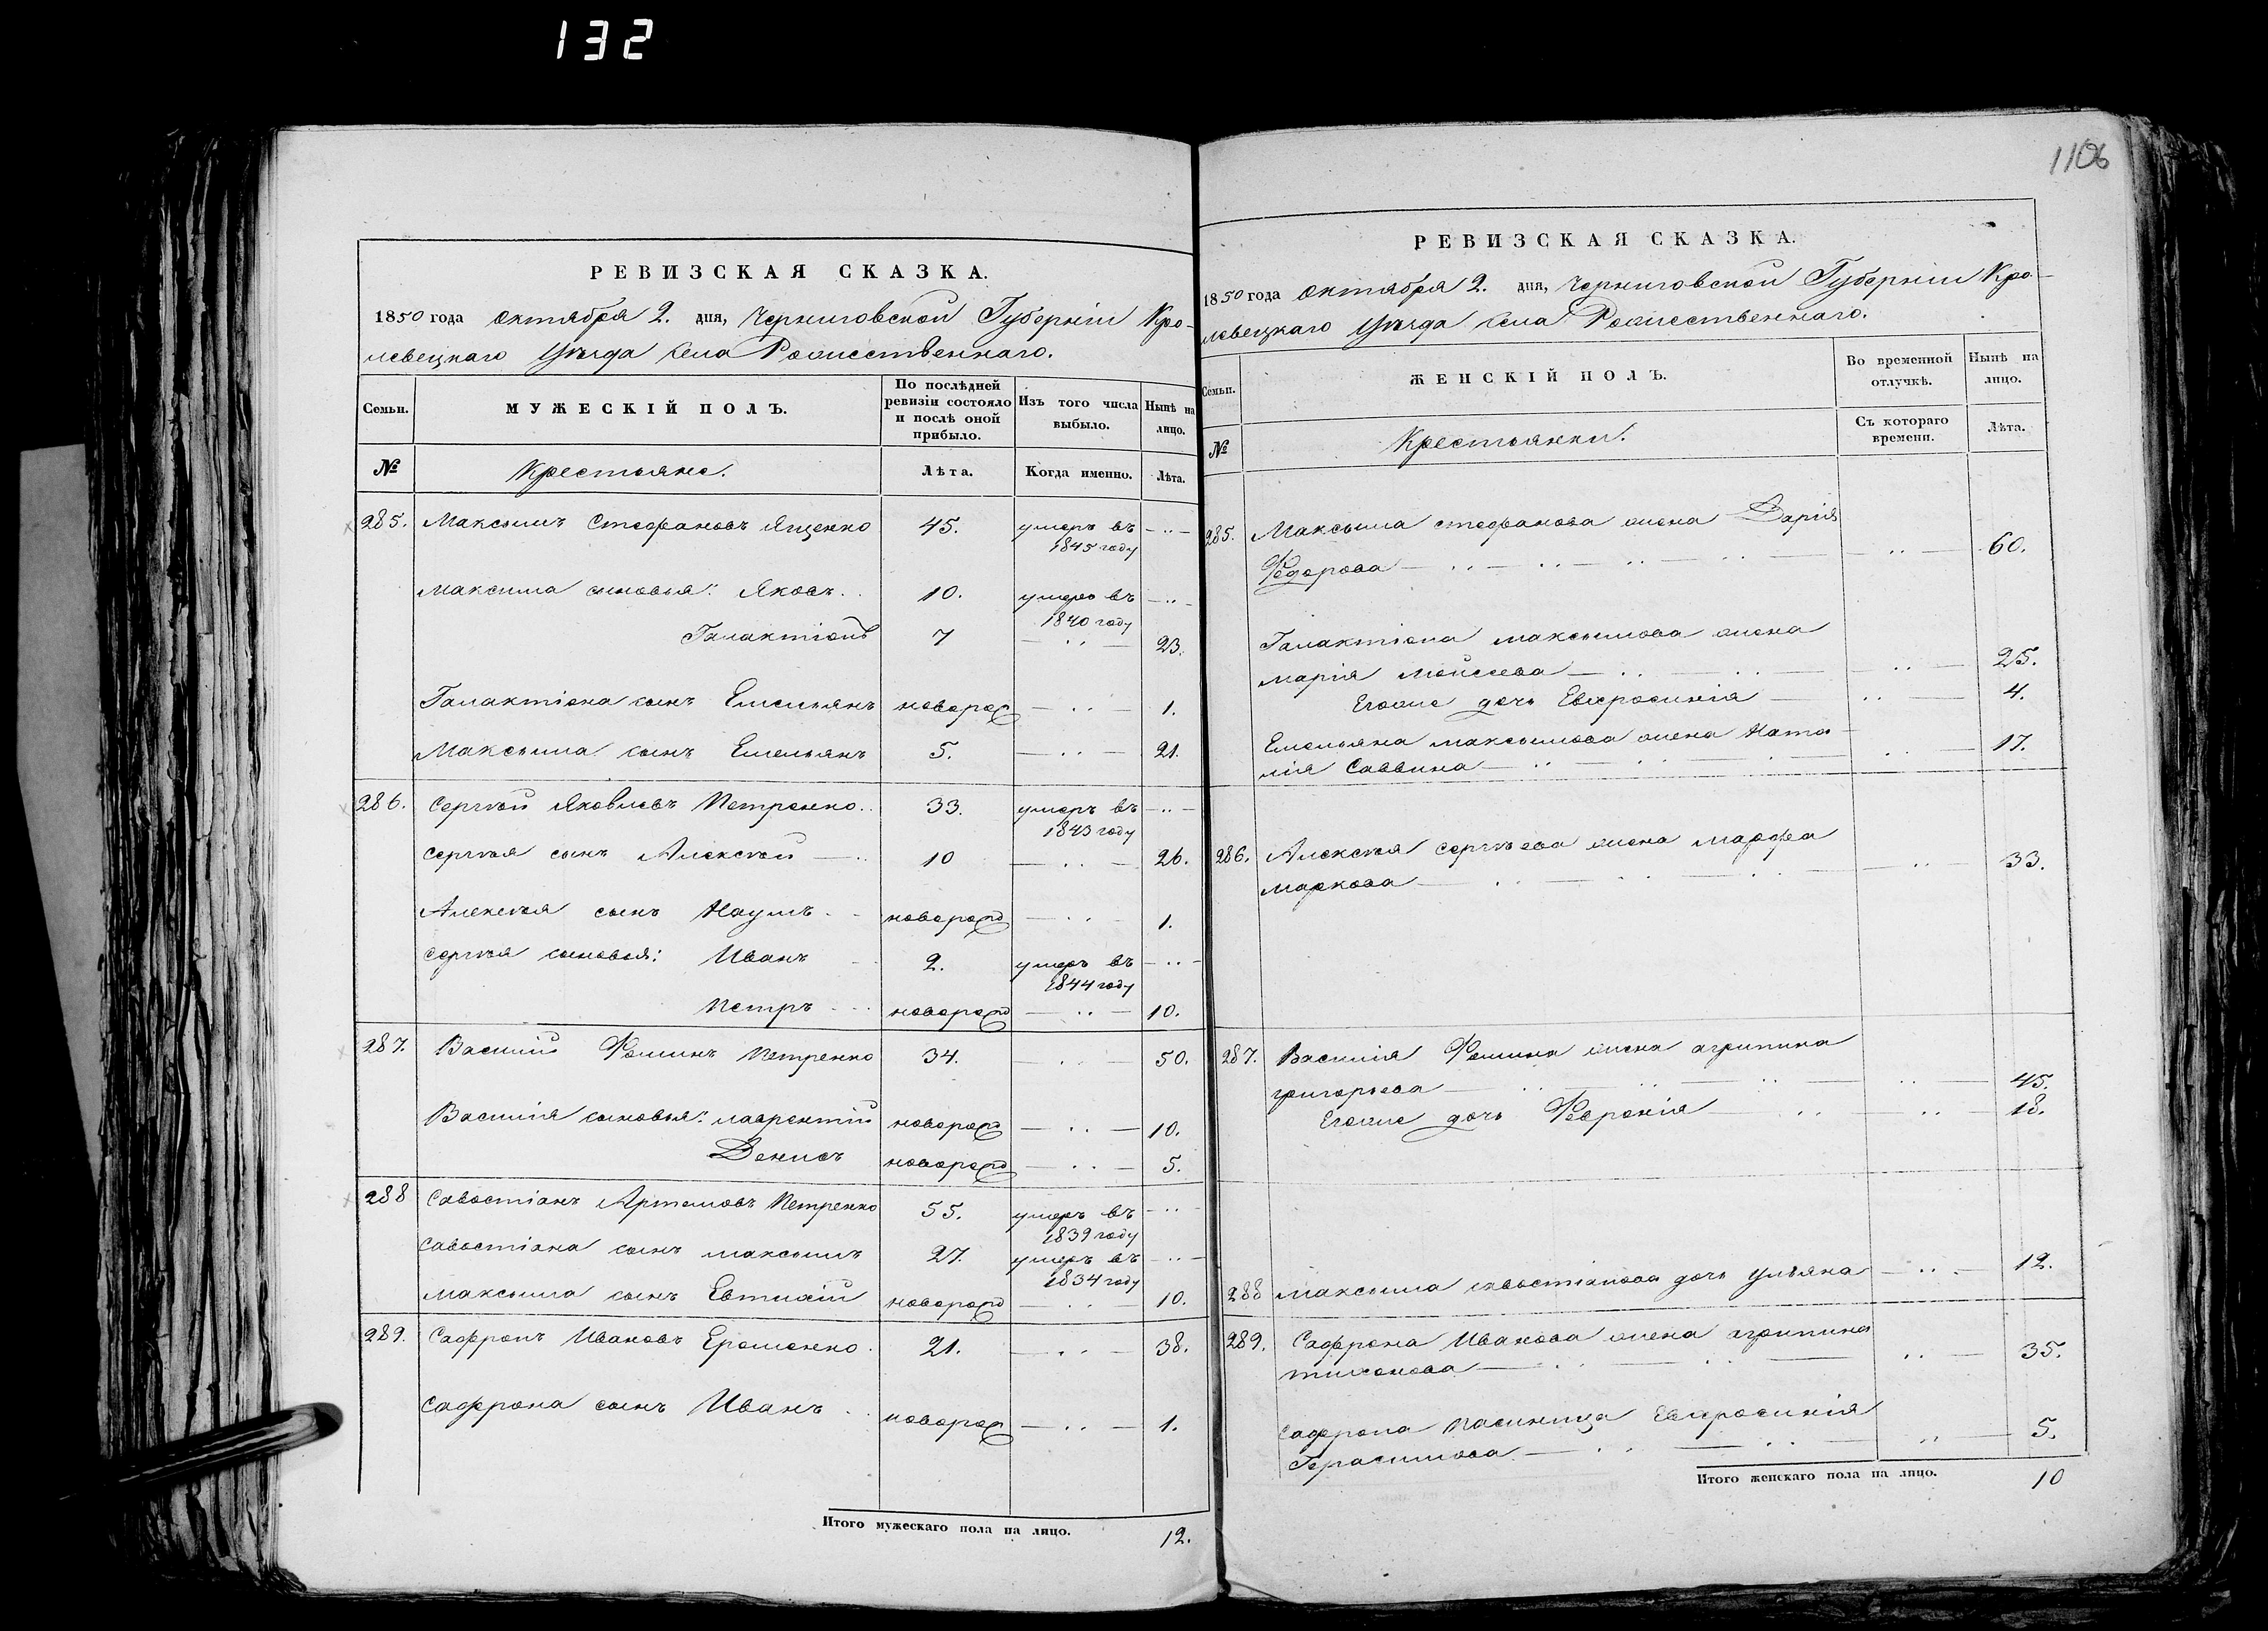 132
1106
РЕВИЗСКАЯ СКАЗКА.
1850 года октября 2. дня, Черниговской Губернiи Кро-
левецкаго Уѣзда села Рожественнаго.
Семьи. МУЖЕСКIЙ ПОЛЪ. По послѣдней ревизiи состояло и послѣ оной прибыло. Изъ того числа выбыло. Нынѣ на лицо.
№ Крестьяне. Лѣта. Когда именно. Лѣта.
285. Максымъ Стефановъ Ященко 45. умеръ въ 1845 году
Максыма сыновья: Яковъ 10. умеръ въ 1840 году
Галактiонъ 7 23.
Галактiона сынъ Емельянъ новорож 1.
Максыма сынъ Емельянъ 5. 21.
286. Сергѣй Яковлевъ Петренко 33. умеръ въ 1843 году
Сергѣя сынъ Алексѣй 10 26.
Алексѣя сынъ Наумъ новорожд 1.
Сергѣя сыновья: Иванъ 2. умеръ въ 1844 году
Петръ новорожд 10.
287. Василiй Фоминъ Петренко 34. 50.
Василiя сыновья: Лаврентiй новорожд 10.
Денисъ новорожд 5.
288 Савостiанъ Артемовъ Петренко 55. умеръ въ 1839 году
Савостiана сынъ Максымъ 27. умеръ въ 1834 году
Максыма сынъ Евтихiй новорожд 10.
289. Сафронъ Ивановъ Ероменко. 21. 38.
Сафрона сынъ Иванъ новорож 1.
Итого мужескаго пола на лицо. 12.
РЕВИЗСКАЯ СКАЗКА.
1850 года октября 2. дня, Черниговской Губернiи Кро-
левецкаго Уѣзда села Рожественнаго.
Семьи. ЖЕНСКIЙ ПОЛЪ. Во временной отлучкѣ. Нынѣ на лицо.
№ Крестьянки. Съ котораго времени. Лѣта.
285. Максыма Стефанова жена Дарiя
Федорова 60.
Галактiона Максымова жена
Марiя Мойсеева 25.
Егоже дочь Евфросинiя 4.
Емельяна Максымова жена Ната-
лiя Саввина 17.
286. Алексѣя Сергѣева жена Марфа
Маркова 33.
287. Василiя Фомина жена Агрипина
Григорьева 45.
Егоже дочь Февронiя 18.
288 Максыма Савостiанова дочь Ульяна 12.
289. Сафрона Иванова жена Агрипина
Тихонова 35.
Сафрона пасинница Евфросинiя
Герасимова 5.
Итого женскаго пола на лицо. 10